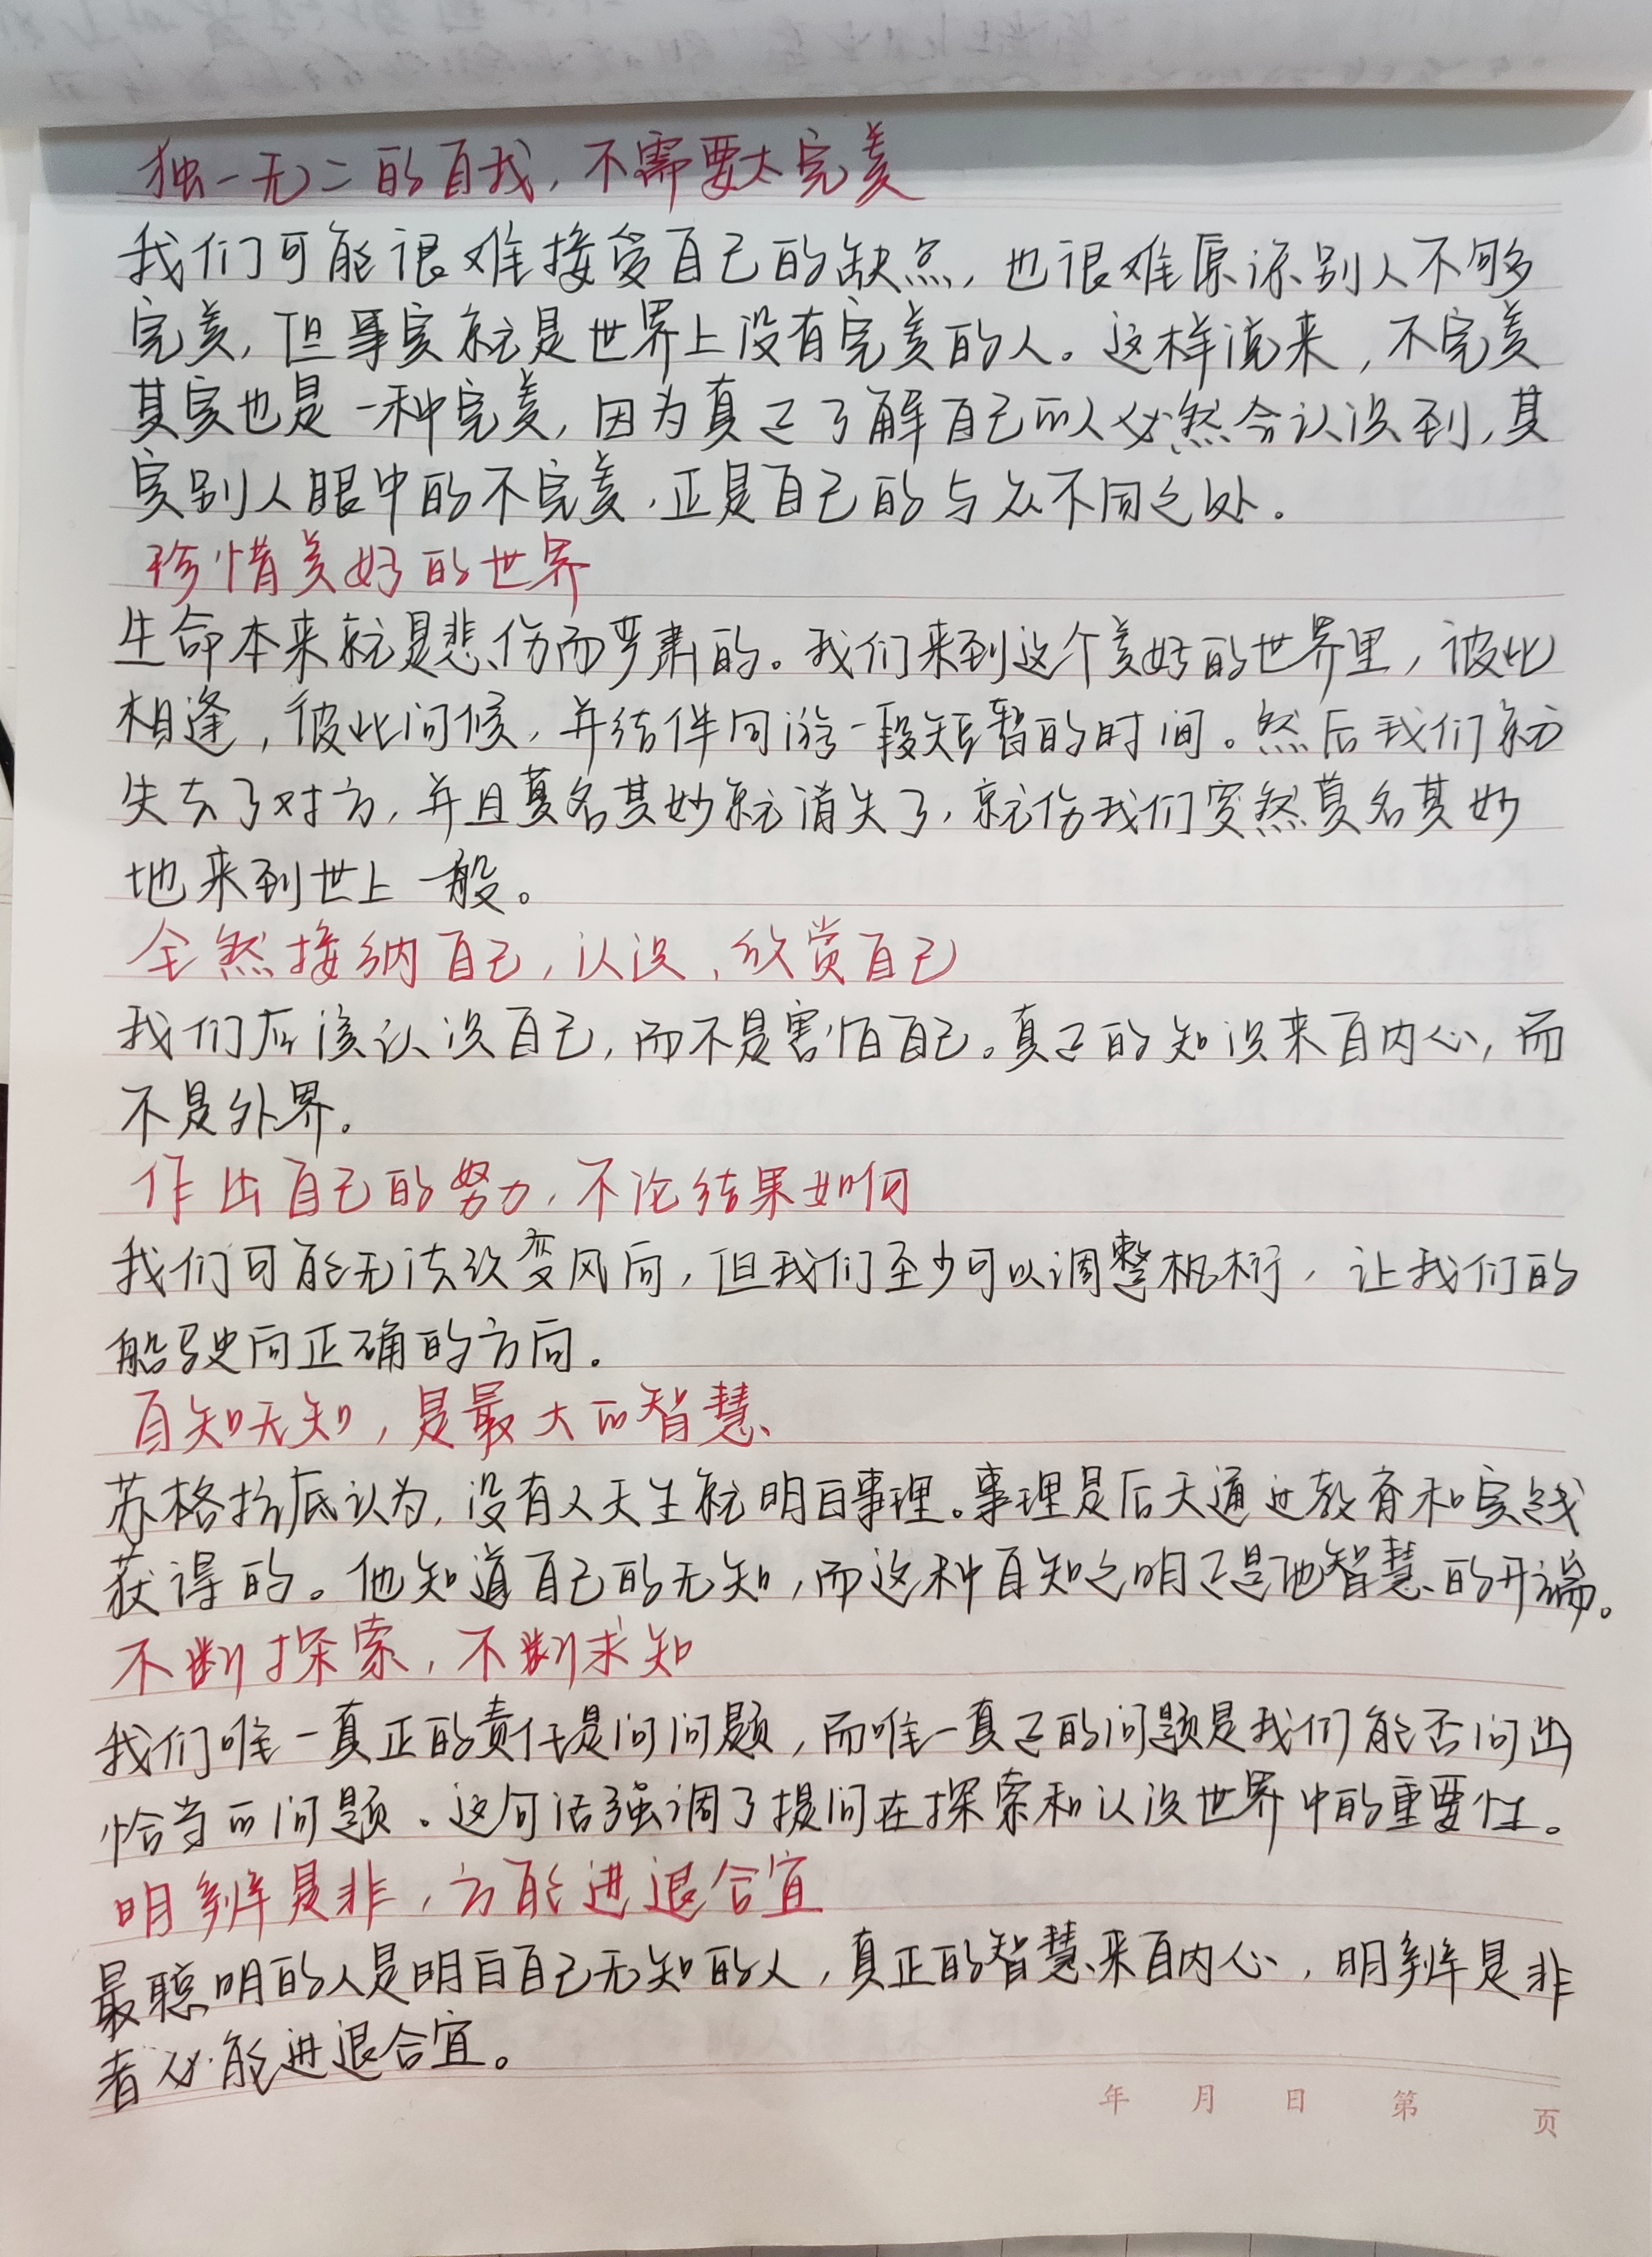 独一无二的自我，不需要太完美
我们可能很难接受自己的缺点，也很难原谅别人不够
完美，但事实就是世界上没有完美的人。这样说来，不完美
其实也是一种完美，因为真正了解自己的人必然会认识到，其
实别人眼中的不完美，正是自己的与众不同之处。
珍惜美好的世界
生命本来就是悲伤而严肃的。我们来到这个美好的世界里，彼此
相逢，彼此问候，并结伴同游一段短暂的时间。然后我们就
失去了对方，并且莫名其妙就消失了，就像我们突然莫名其妙
地来到世上一般。
全然接纳自己，认识、欣赏自己
我们应该认识自己，而不是害怕自己。真正的知识来自内心，而
不是外界。
作出自己的努力，不论结果如何
我们可能无法改变风向，但我们至少可以调整帆桁，让我们的
船驶向正确的方向。
自知无知，是最大的智慧
苏格拉底认为，没有人天生就明白事理。事理是后天通过教育和实践
获得的。他知道自己的无知，而这种自知之明正是他智慧的开端。
不断探索，不断求知
我们唯一真正的责任是问问题，而唯一真正的问题是我们能否问出
恰当的问题。这句话强调了提问在探索和认识世界中的重要性。
明辨是非，方能进退合宜
最聪明的人是明白自己无知的人，真正的智慧来自内心，明辨是非
者必能进退合宜。
年 月 日 第 页